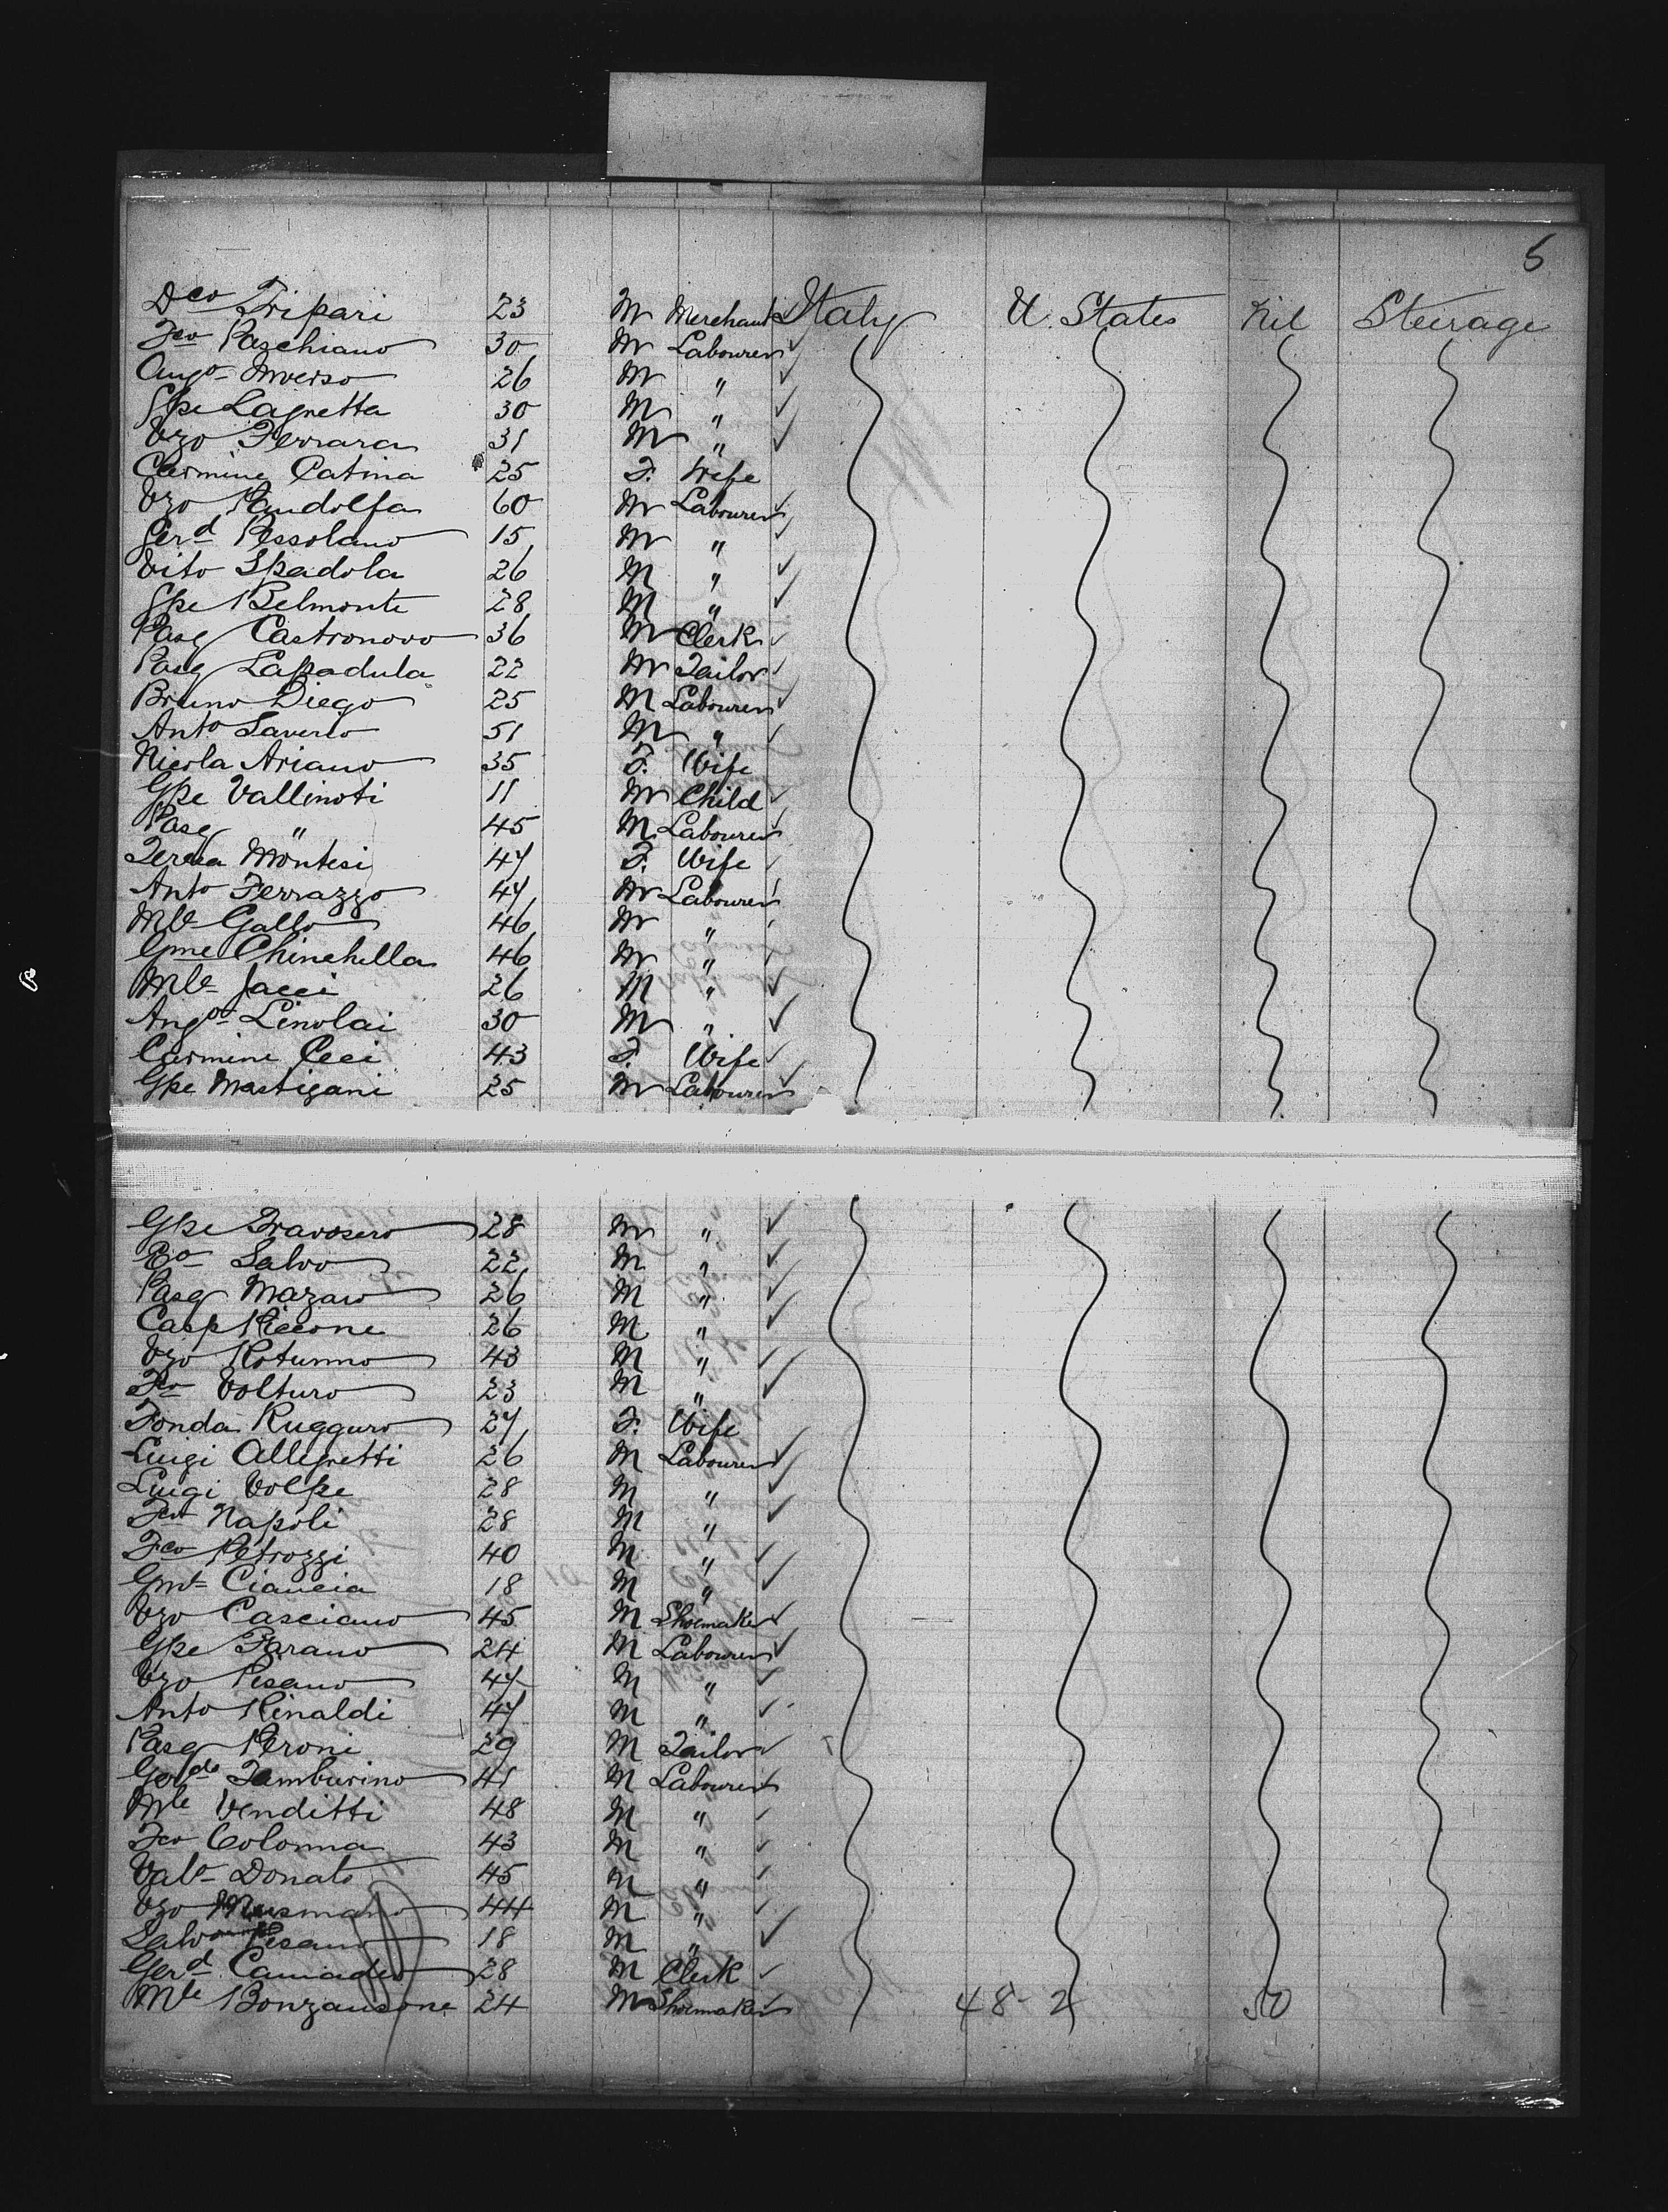 5
Dco Tripari 23 M Merchant Italy U. States Nil Steerage
Fco Paschiano 30 M Labourer
Ango Inverso 26 M "
Gpe Lagretta 30 M "
Vzo Ferrara 31 M "
Carmine Catina 25 F. Wife
Vzo Pandolfa 60 M Labourer
Gerd Pessolano 15 M "
Vito Spadola 26 M "
Gpe Belmonte 28 M "
Pasq Castronovo 36 M Clerk
Pasq Lapadula 22 M Tailor
Bruno Diego 25 M Labourer
Anto Saverio 51 M "
Nicola Ariano 35 F. Wife
Gpe Vallinoti 11 M Child
Pasq " 45 M Labourer
Teresa Montesi 47 F. Wife
Anto Ferrazzo 47 M Labourer
Mle Gallo 46 M "
Gme Chinchella 46 M "
Mle Jacci 26 M "
Ango Linolai 30 M "
Carmine Ceci 43 F. Wife
Gpe Mastigani 25 M Labourer
Gpe Travosero 28 M "
Salvo 22 M "
Pasq Mazaro 26 M "
Casp Piccone 26 M "
Vzo Rotunno 43 M "
Fco Volturo 23 M "
Fonda Rugguro 27 F. Wife
Luigi Allegretti 26 M Labourer
Luigi Volpe 28 M "
Fco Napoli 28 M "
Fco Petrozzi 40 M "
Ciancia 18 M "
Vzo Casciano 45 M Shoemaker
Gpe Farano 24 M Labourer
Vzo Pisano 47 M "
Anto Rinaldi 47 M "
Pasq Peroni 29 M Tailor
Gerdo Tamburino 41 M Labourer
Mle Venditti 48 M "
Fco Colonna 43 M "
Donato 45 M "
Vzo Musmano 44 M "
Salvo Pisano 18 M "
Gerd Camadeo 28 M Clerk
Mle Bonzansone 24 M Shoemaker 48-2 50